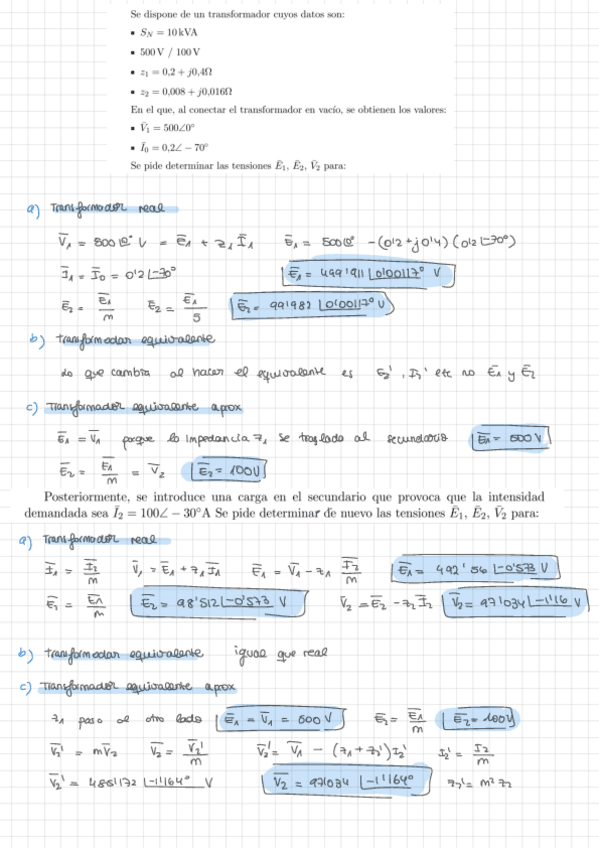 Se dispone de un transformador cuyos datos son:
▪ S_N = 10 kVA
▪ 500 V / 100 V
▪ z₁ = 0,2 + j0,4Ω
▪ z₂ = 0,008 + j0,016Ω
En el que, al conectar el transformador en vacío, se obtienen los valores:
▪ V̄₁ = 500∠0°
▪ Ī₀ = 0,2∠ − 70°
Se pide determinar las tensiones Ē₁, Ē₂, V̄₂ para:
a) Transformador real
V̄₁ = 500∠0° V = Ē₁ + z₁ Ī₁    Ē₁ = 500∠0° − (0'2 + j0'4)(0'2∠−70°)
Ī₁ = Ī₀ = 0'2∠−70°    Ē₁ = 499'911∠0'00117° V
Ē₂ = Ē₁/m    Ē₂ = Ē₁/5    Ē₂ = 99'982∠0'00117° V
b) transformador equivalente
Lo que cambia al hacer el equivalente es E₂', I₂' etc no Ē₁ y Ē₂
c) Transformador equivalente aprox
Ē₁ = V̄₁ porque la impedancia z₁ se traslada al secundario    Ē₁ = 500 V
Ē₂ = Ē₁/m = V̄₂    Ē₂ = 100 V
Posteriormente, se introduce una carga en el secundario que provoca que la intensidad
demandada sea Ī₂ = 100∠ − 30°A Se pide determinar de nuevo las tensiones Ē₁, Ē₂, V̄₂ para:
a) Transformador real
Ī₁ = Ī₂/m    V̄₁ = Ē₁ + z₁ Ī₁    Ē₁ = V̄₁ − z₁ Ī₂/m    Ē₁ = 492'56∠−0'573 V
Ē₂ = Ē₁/m    Ē₂ = 98'512∠−0'573 V    V̄₂ = Ē₂ − z₂ Ī₂    V̄₂ = 97'034∠−1'16 V
b) transformador equivalente    igual que real
c) Transformador equivalente aprox
z₁ pasa al otro lado    Ē₁ = V̄₁ = 500 V    Ē₂ = Ē₁/m    Ē₂ = 100 V
V̄₂' = m V̄₂    V̄₂ = V̄₂'/m    V̄₂' = V̄₁ − (z₁ + z₂') I₂'    I₂' = I₂/m
V̄₂' = 485'172∠−1'164° V    V̄₂ = 97'034∠−1'164°    z₂' = m² z₂